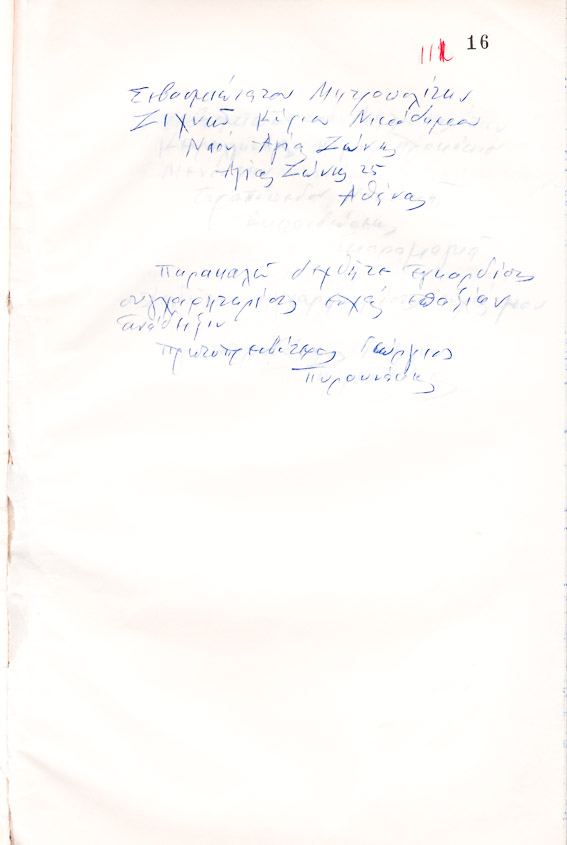 16
Σεβασμιώτατον Μητροπολίτην
Ζιχνῶν Κύριον Νικόδημον
Ναόν Αγίας Ζώνης
Αγίας Ζώνης 25
Αθήνας
Παρακαλῶ δεχθῆτε ἐγκαρδίους
συγχαρητηρίους εὐχάς ἐπαξίαν
ἀνάδειξιν
Πρωτοπρεσβύτερος Γεώργιος
Πυρουνάκης